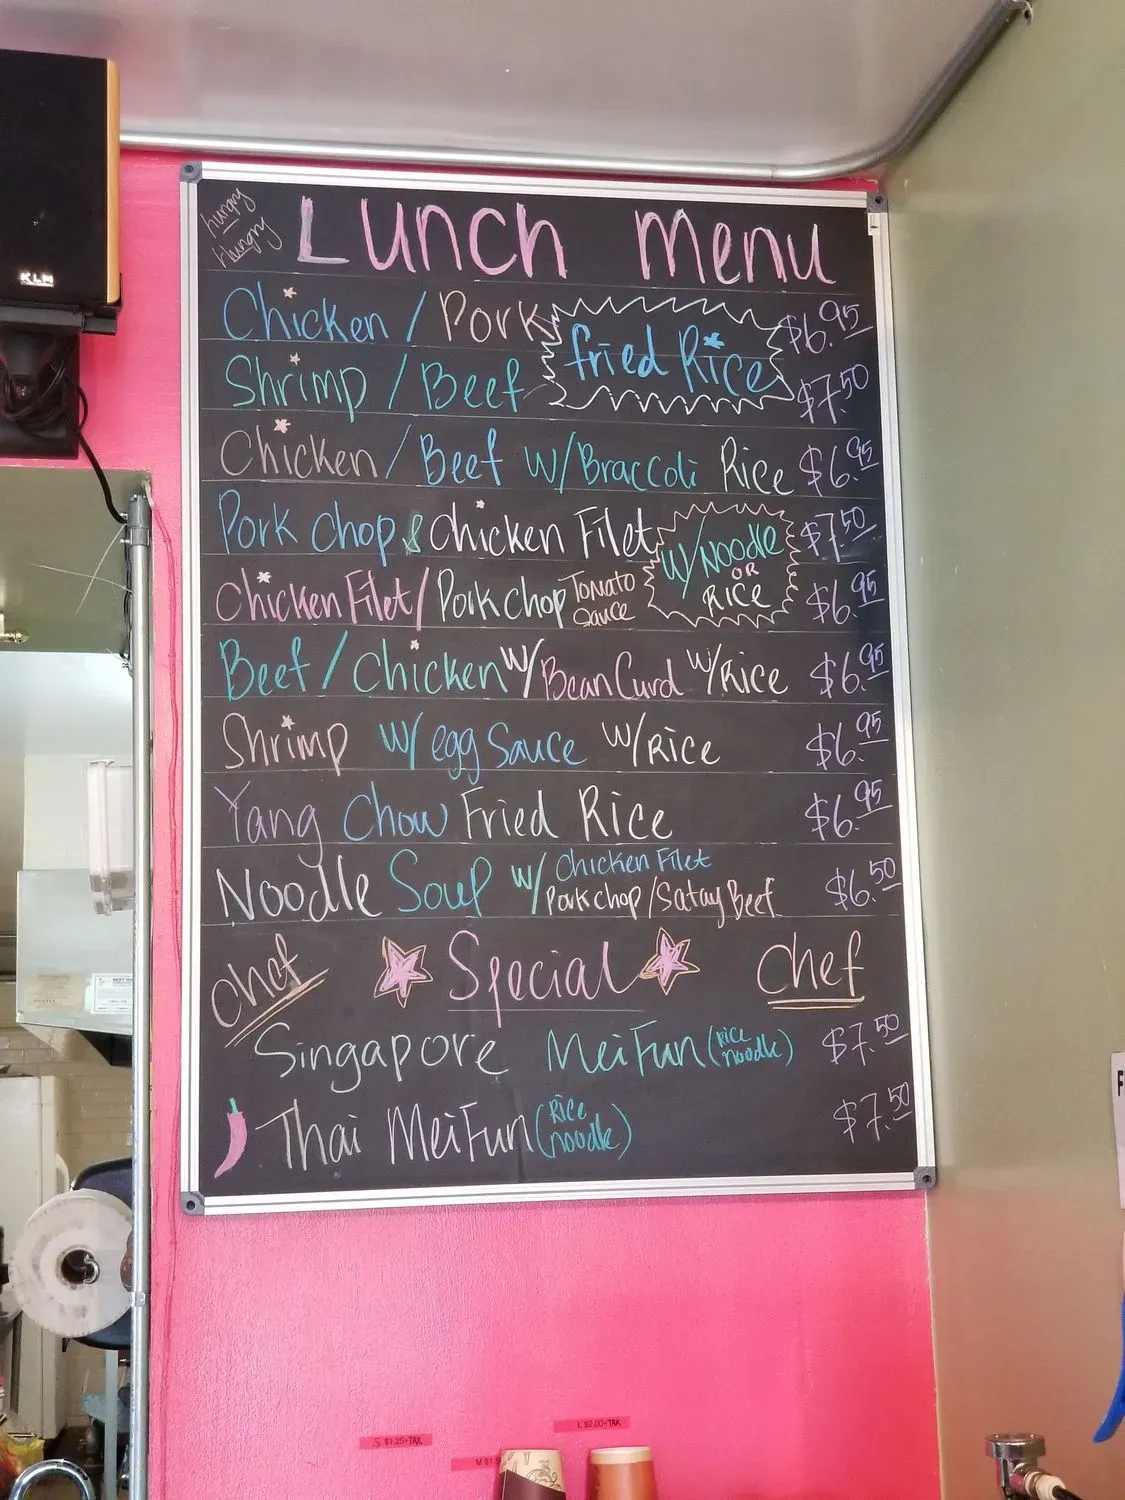 hungry
Hungry
Lunch Menu
Chicken / Pork
Fried Rice
$6.95
Shrimp / Beef
$7.50
Chicken / Beef w/Braccoli Rice $6.95
Pork Chop & Chicken Filet
w/Noodle
OR
Rice
$7.50
Chicken Filet / Pork chop Tomato
Sauce
$6.95
Beef / Chicken w/Bean Curd w/Rice $6.95
Shrimp w/ egg Sauce w/Rice $6.95
Yang Chow Fried Rice $6.95
Noodle Soup w/ Chicken Filet
Pork chop / Satay Beef
$6.50
Chef Special Chef
Singapore Mei Fun (Rice
noodle)
$7.50
Thai Mei Fun (Rice
noodle)
$7.50
KLM
S $1.25+TAX
L $2.00+TAX